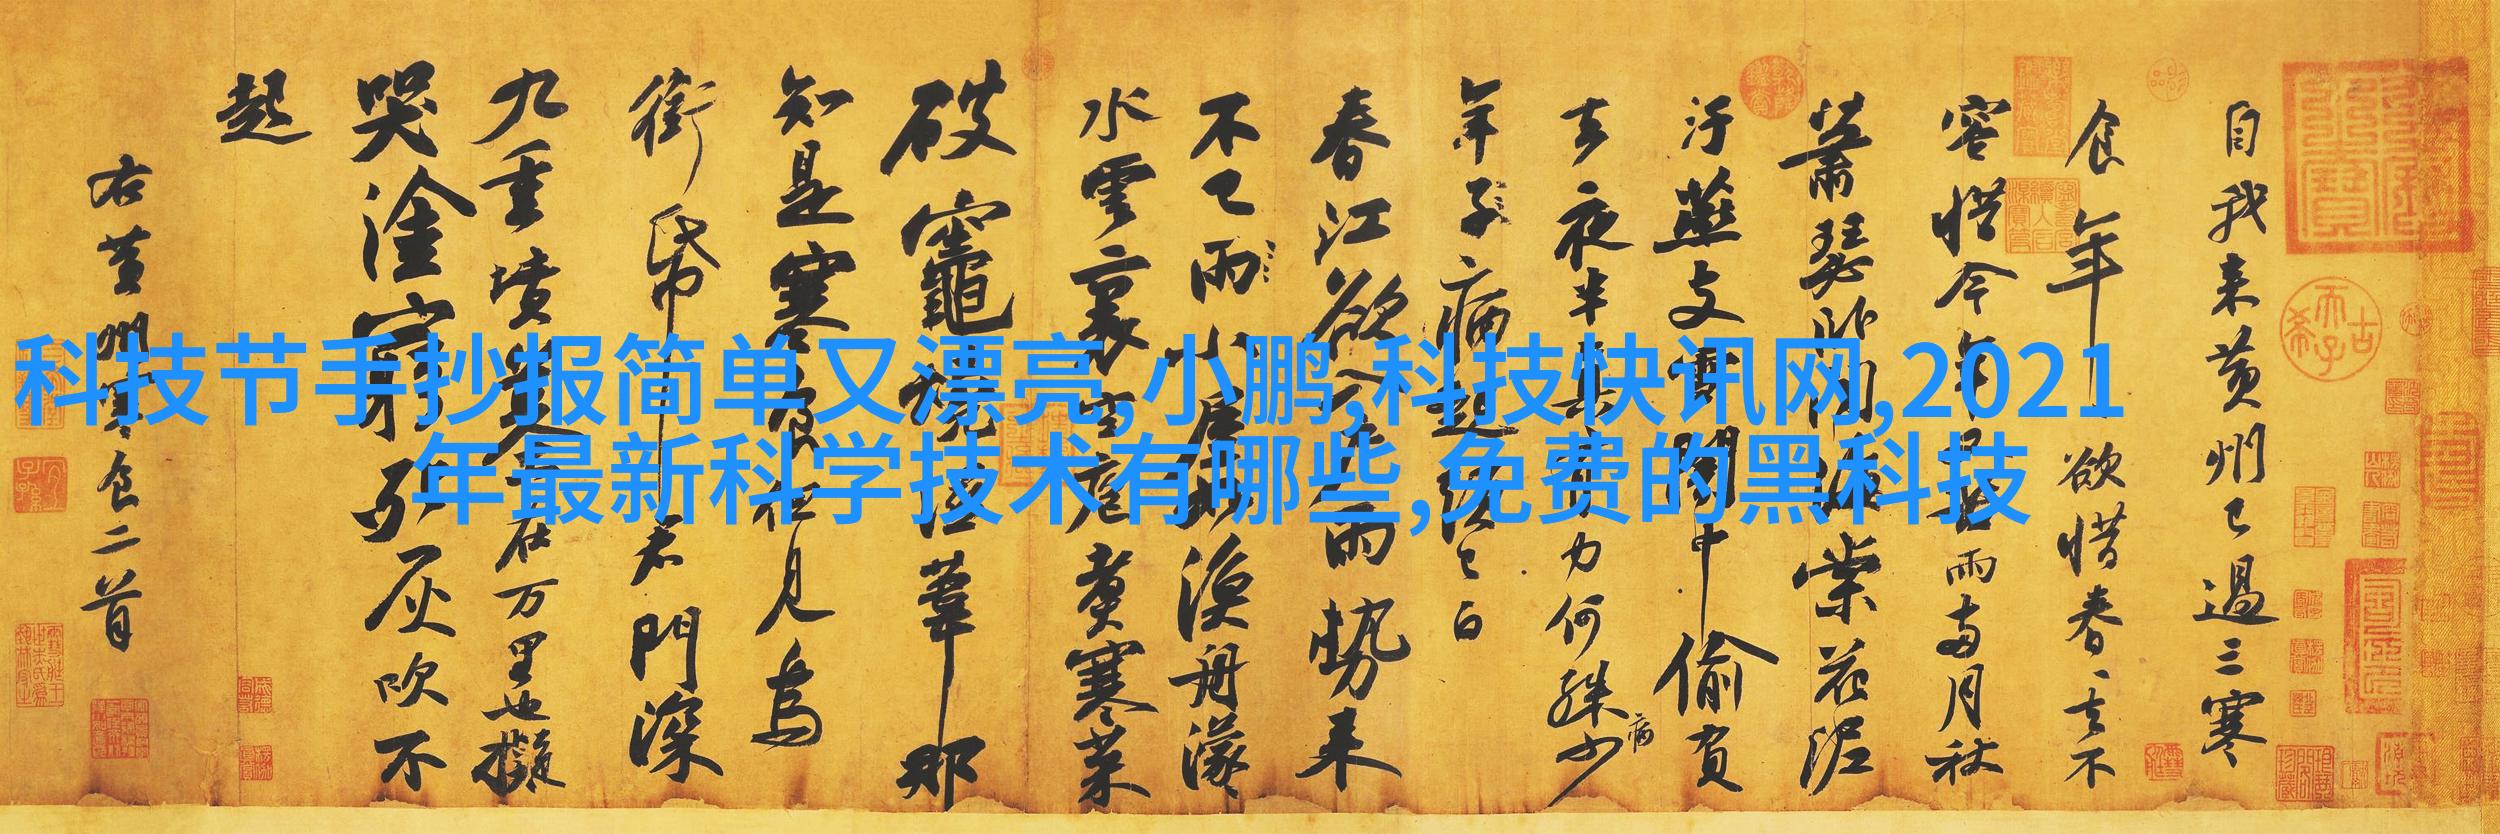 科技节手抄报简单又漂亮,小鹏,科技快讯网,2021
年最新科学技术有哪些,免费的黑科技
自我来黄州已過三寒
食年欲惜春〻去不
容惜今年又苦雨兩月秋
蕭瑟卧聞海棠花泥
汙燕支雪闇中偷負
去夜半真有力何殊少
病
年子病起須已白
春江欲入户雨勢来
不已雨小屋如漁舟濛
水雲裏空庖煑寒菜
破竈燒濕葦那
知是寒食但見烏
銜帋君門深
九重墳墓在万里也擬
哭塗窮死灰吹不
起
右黄州寒食二首